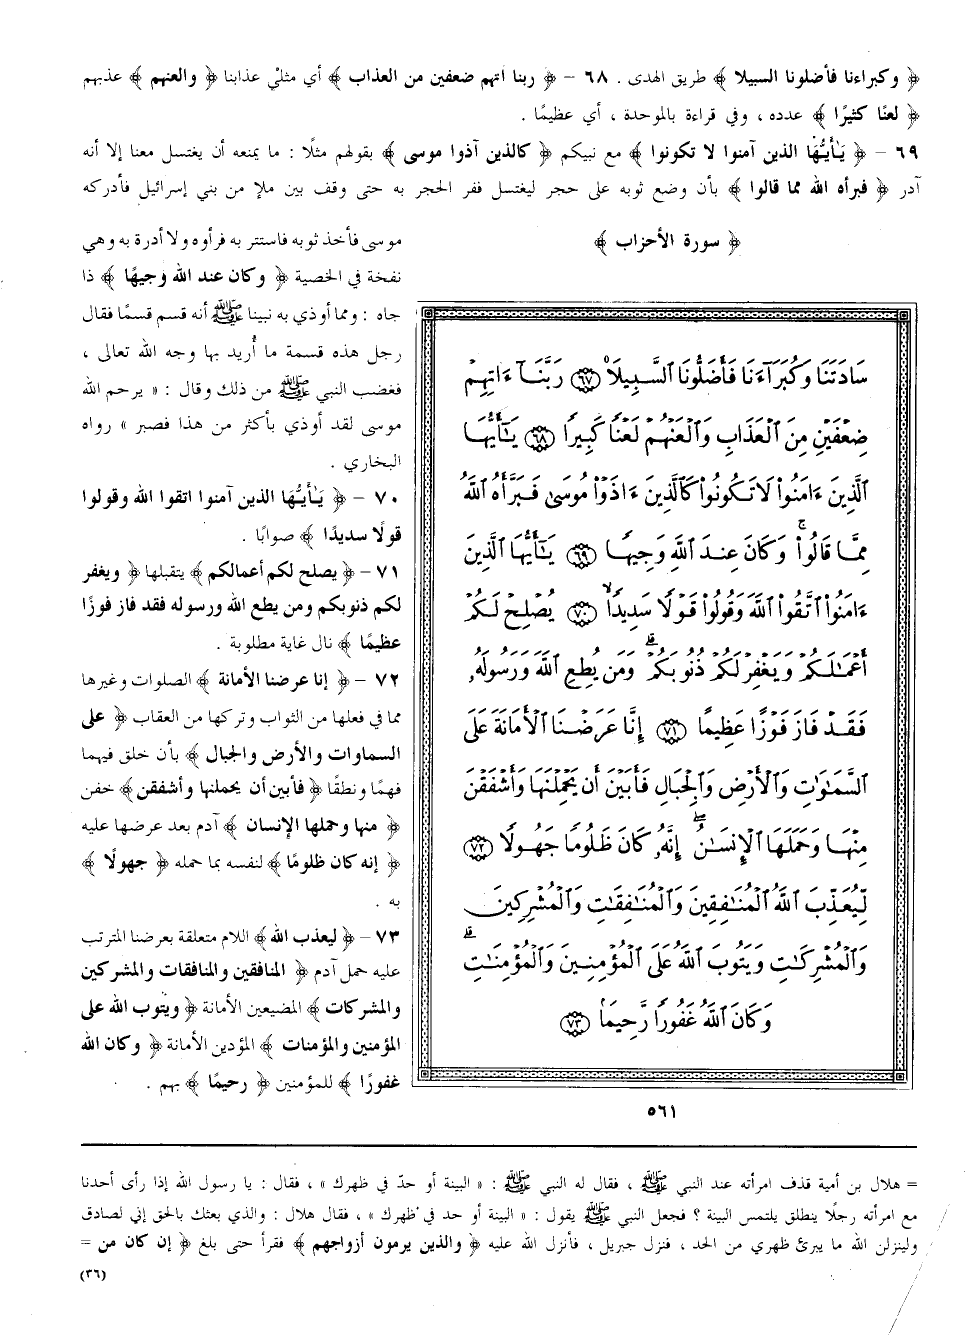 ﴿ وكبراءنا فأضلونا السبيلا ﴾ طريق الهدى . ٦٨ – ﴿ ربنا آتهم ضعفين من العذاب ﴾ أي مثليْ عذابنا ﴿ والعنهم ﴾ عذبهم
﴿ لعنًا كثيرًا ﴾ عدده ، وفي قراءة بالموحدة ، أي عظيمًا .
٦٩ – ﴿ يَـٰأَيُّهَا الذين آمنوا لا تكونوا ﴾ مع نبيكم ﴿ كالذين آذوا موسى ﴾ بقولهم مثلًا : ما يمنعه أن يغتسل معنا إلا أنه
آدر ﴿ فبرأه الله مما قالوا ﴾ بأن وضع ثوبه على حجر ليغتسل ففر الحجر به حتى وقف بين ملإ من بني إسرائيل فأدركه
﴿ سورة الأحزاب ﴾
سَادَتَنَا وَكُبَرَآءَنَا فَأَضَلُّونَا ٱلسَّبِيلَا۠ ﴿٦٧﴾ رَبَّنَآ ءَاتِهِمْ
ضِعْفَيْنِ مِنَ ٱلْعَذَابِ وَٱلْعَنْهُمْ لَعْنًا كَبِيرًا ﴿٦٨﴾ يَـٰٓأَيُّهَا
ٱلَّذِينَ ءَامَنُوا۟ لَا تَكُونُوا۟ كَٱلَّذِينَ ءَاذَوْا۟ مُوسَىٰ فَبَرَّأَهُ ٱللَّهُ
مِمَّا قَالُوا۟ ۚ وَكَانَ عِندَ ٱللَّهِ وَجِيهًا ﴿٦٩﴾ يَـٰٓأَيُّهَا ٱلَّذِينَ
ءَامَنُوا۟ ٱتَّقُوا۟ ٱللَّهَ وَقُولُوا۟ قَوْلًا سَدِيدًا ﴿٧٠﴾ يُصْلِحْ لَكُمْ
أَعْمَـٰلَكُمْ وَيَغْفِرْ لَكُمْ ذُنُوبَكُمْ ۗ وَمَن يُطِعِ ٱللَّهَ وَرَسُولَهُۥ
فَقَدْ فَازَ فَوْزًا عَظِيمًا ﴿٧١﴾ إِنَّا عَرَضْنَا ٱلْأَمَانَةَ عَلَى
ٱلسَّمَـٰوَٰتِ وَٱلْأَرْضِ وَٱلْجِبَالِ فَأَبَيْنَ أَن يَحْمِلْنَهَا وَأَشْفَقْنَ
مِنْهَا وَحَمَلَهَا ٱلْإِنسَـٰنُ ۖ إِنَّهُۥ كَانَ ظَلُومًا جَهُولًا ﴿٧٢﴾
لِّيُعَذِّبَ ٱللَّهُ ٱلْمُنَـٰفِقِينَ وَٱلْمُنَـٰفِقَـٰتِ وَٱلْمُشْرِكِينَ
وَٱلْمُشْرِكَـٰتِ وَيَتُوبَ ٱللَّهُ عَلَى ٱلْمُؤْمِنِينَ وَٱلْمُؤْمِنَـٰتِ ۗ
وَكَانَ ٱللَّهُ غَفُورًا رَّحِيمًا ﴿٧٣﴾
٥٦١
موسى فأخذ ثوبه فاستتر به فرأوه ولا أدرة به وهي
نفخة في الخصية ﴿ وكان عند الله وجيهًا ﴾ ذا
جاه : ومما أوذي به نبينا ﷺ أنه قسم قسمًا فقال
رجل هذه قسمة ما أُريد بها وجه الله تعالى ،
فغضب النبي ﷺ من ذلك وقال : « يرحم الله
موسى لقد أوذي بأكثر من هذا فصبر » رواه
البخاري .
٧٠ – ﴿ يَـٰأَيُّهَا الذين آمنوا اتقوا الله وقولوا
قولًا سديدًا ﴾ صوابًا .
٧١ – ﴿ يصلح لكم أعمالكم ﴾ يتقبلها ﴿ ويغفر
لكم ذنوبكم ومن يطع الله ورسوله فقد فاز فوزًا
عظيمًا ﴾ نال غاية مطلوبة .
٧٢ – ﴿ إنا عرضنا الأمانة ﴾ الصلوات وغيرها
مما في فعلها من الثواب وتركها من العقاب ﴿ على
السماوات والأرض والجبال ﴾ بأن خلق فيهما
فهمًا ونطقًا ﴿ فأبين أن يحملنها وأشفقن ﴾ خفن
﴿ منها وحملها الإنسان ﴾ آدم بعد عرضها عليه
﴿ إنه كان ظلومًا ﴾ لنفسه بما حمله ﴿ جهولًا ﴾
به .
٧٣ – ﴿ ليعذب الله ﴾ اللام متعلقة بعرضنا المترتب
عليه حمل آدم ﴿ المنافقين والمنافقات والمشركين
والمشركات ﴾ المضيعين الأمانة ﴿ ويتوب الله على
المؤمنين والمؤمنات ﴾ المؤدين الأمانة ﴿ وكان الله
غفورًا ﴾ للمؤمنين ﴿ رحيمًا ﴾ بهم .
= هلال بن أمية قذف امرأته عند النبي ﷺ ، فقال له النبي ﷺ : « البينة أو حدّ في ظهرك » ، فقال : يا رسول الله إذا رأى أحدنا
مع امرأته رجلًا ينطلق يلتمس البينة ؟ فجعل النبي ﷺ يقول : « البينة أو حد في ظهرك » ، فقال هلال : والذي بعثك بالحق إني لصادق
ولينزلن الله ما يبرئ ظهري من الحد ، فنزل جبريل ، فأنزل الله عليه ﴿ والذين يرمون أزواجهم ﴾ فقرأ حتى بلغ ﴿ إن كان من =
(٣٦)